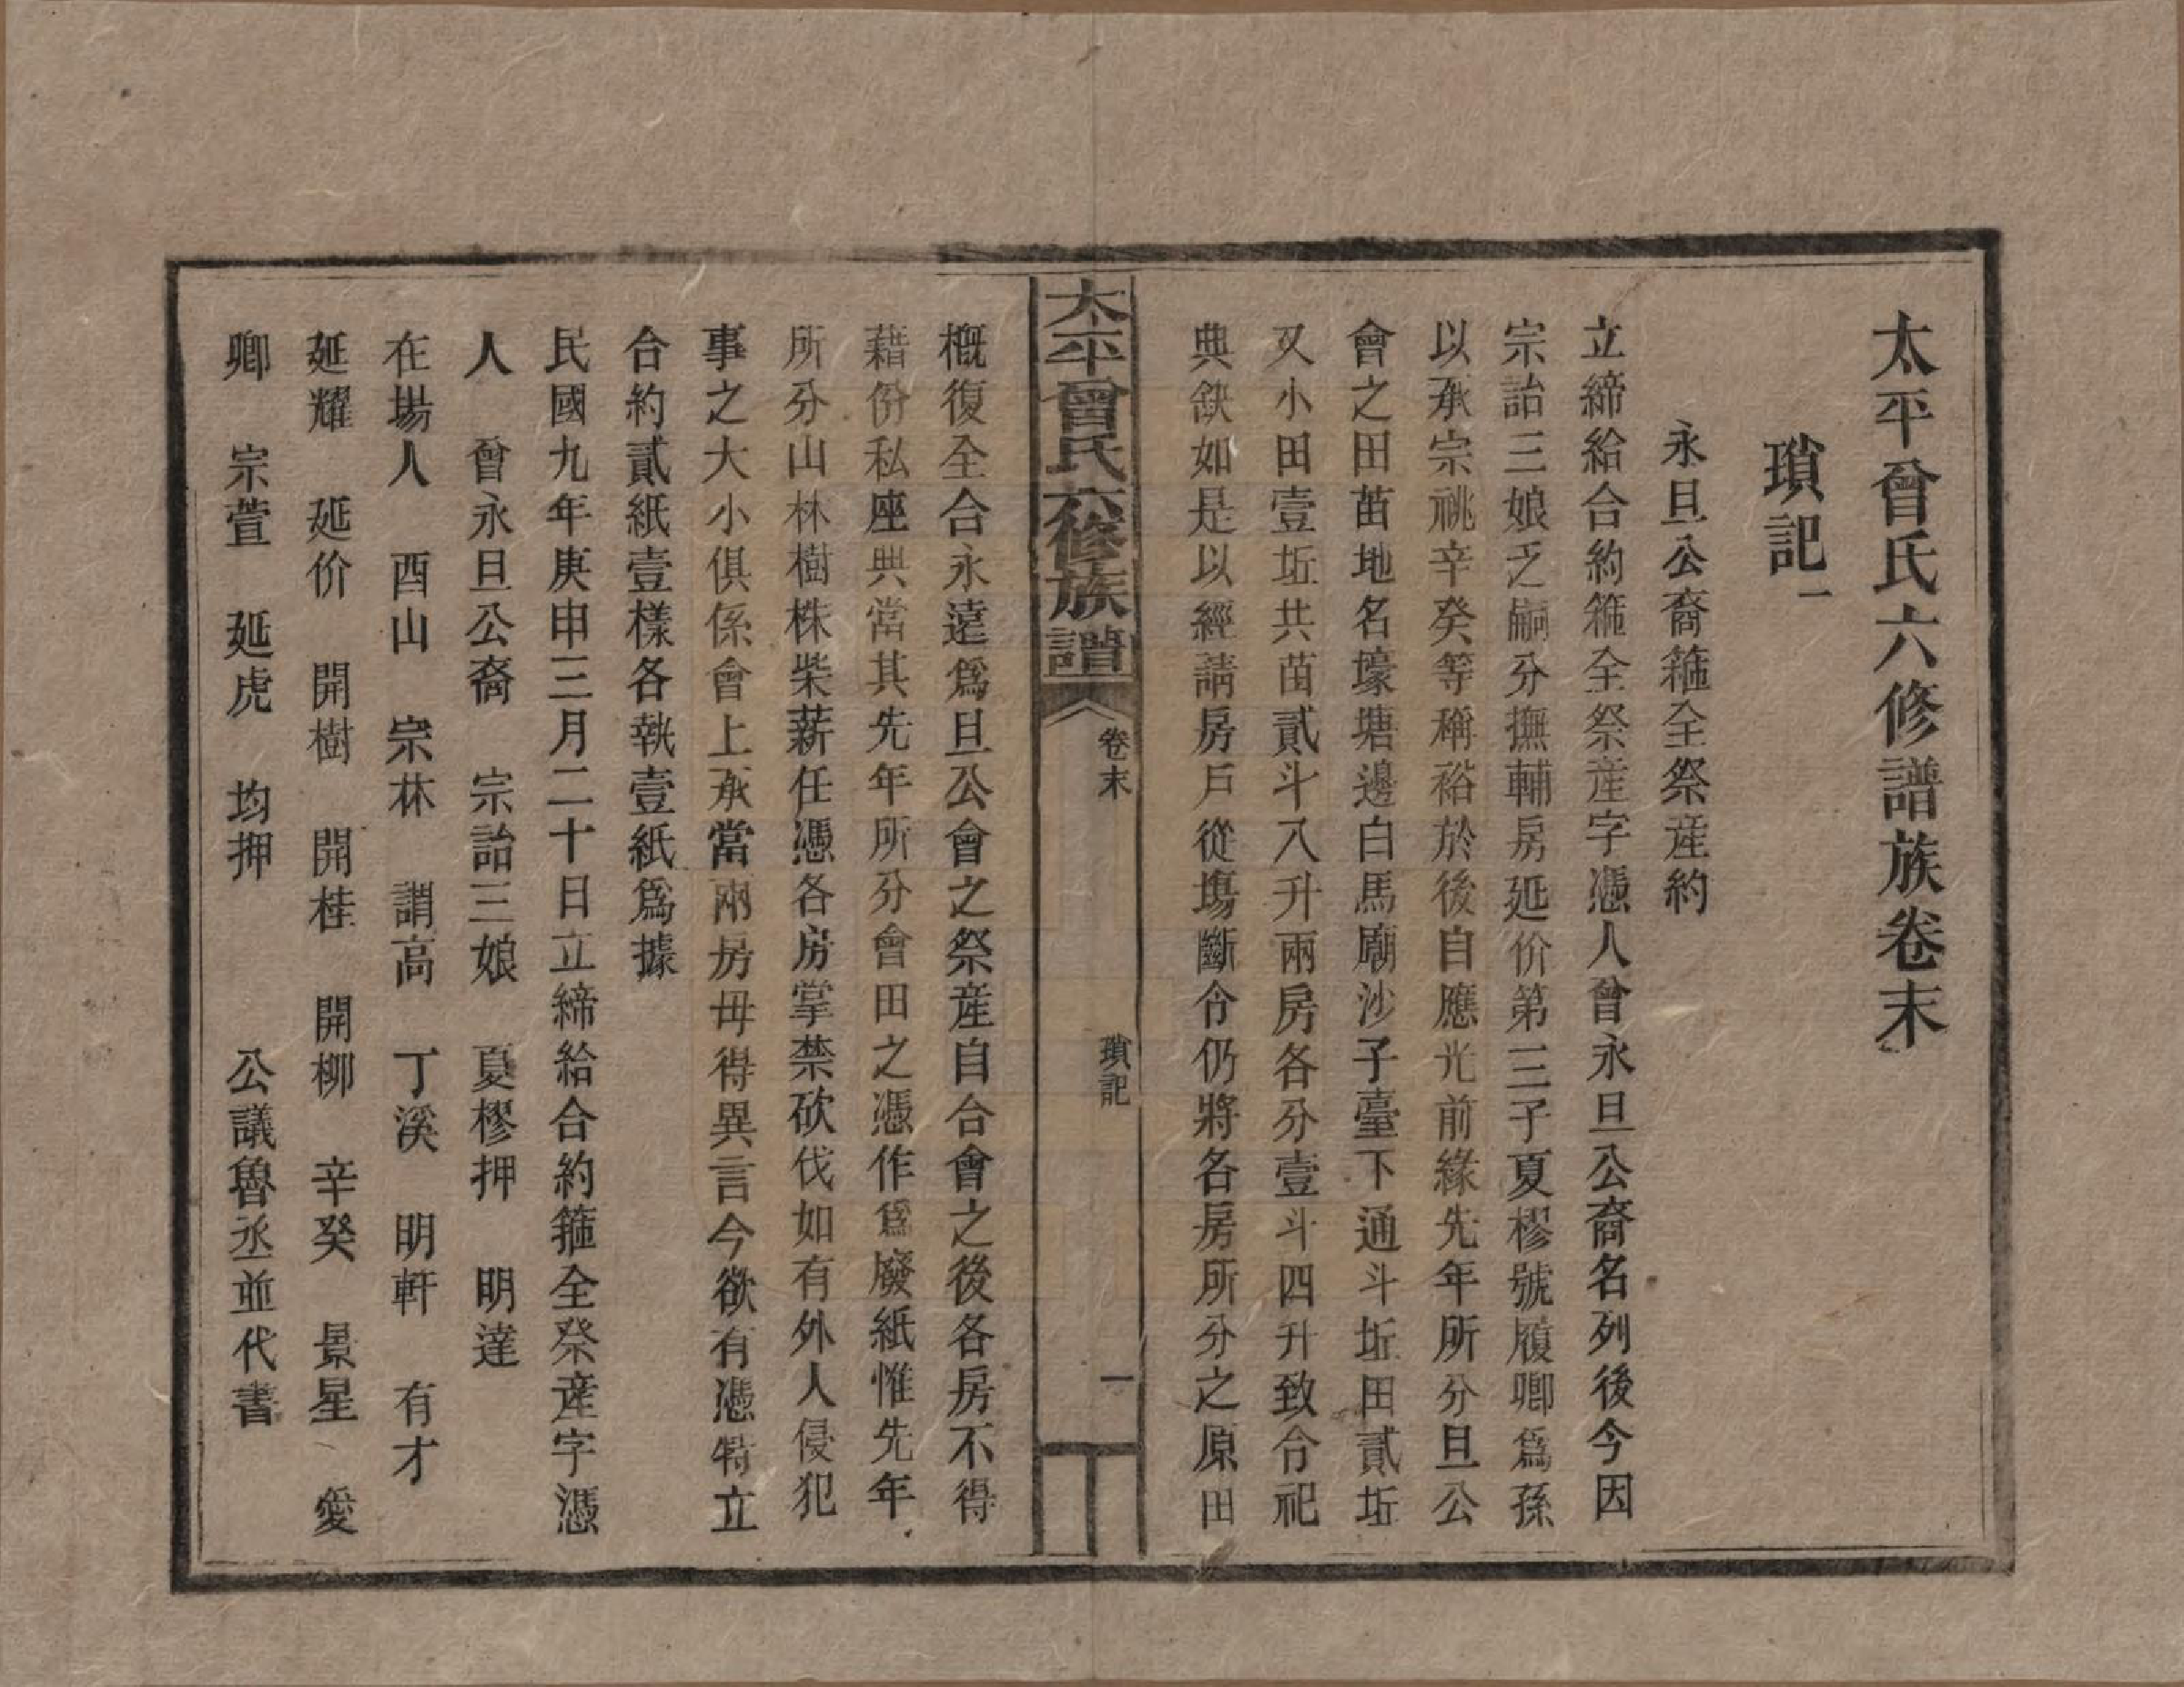 太平曾氏六修譜族卷末
瑣記一
永旦公裔箍全祭産約
立締給合約箍全祭産字憑人曾永旦公裔名列後今因
宗詒三娘乏嗣分撫輔房延价第三子夏樛號履卿爲孫
以承宗祧辛癸等稱裕於後自應光前緣先年所分旦公
會之田苗地名壕塘邊白馬廟沙子臺下通斗坵田貳坵
又小田壹坵共苗貳斗八升兩房各分壹斗四升致合祀
典缺如是以經請房戶從塲斷令仍將各房所分之原田
太平曾氏六修族譜
卷末
瑣記
一
概復全合永遠爲旦公會之祭産自合會之後各房不得
藉份私座典當其先年所分會田之憑作爲廢紙惟先年
所分山林樹株柴薪任憑各房掌禁砍伐如有外人侵犯
事之大小俱係會上承當兩房毋得異言今欲有憑特立
合約貳紙壹樣各執壹紙爲據
民國九年庚申三月二十日立締給合約箍全祭産字憑
人　曾永旦公裔　宗詒三娘　夏樛押　明達
在場人　酉山　宗林　謂高　丁溪　明軒　有才
延耀　延价　開樹　開桂　開柳　辛癸　景星　愛
卿　宗萱　延虎　均押　公議魯丞並代書